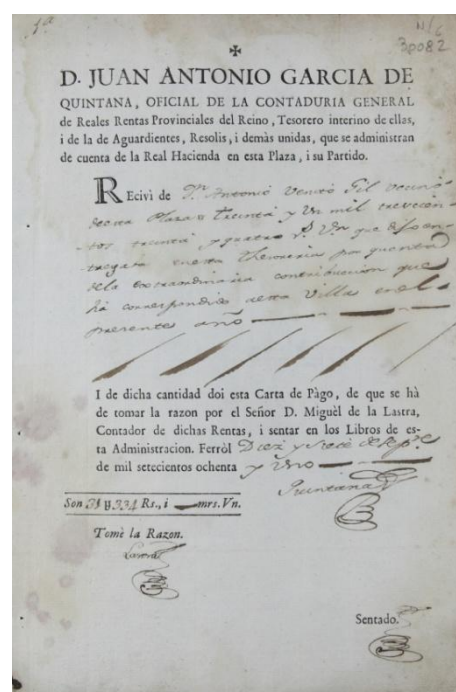 1ª
N/6
30082
✠
D. JUAN ANTONIO GARCIA DE
QUINTANA, OFICIAL DE LA CONTADURIA GENERAL
de Reales Rentas Provinciales del Reino, Tesorero interino de ellas,
i de la de Aguardientes, Resolis, i demàs unidas, que se administran
de cuenta de la Real Hacienda en esta Plaza, i su Partido.
Recivì de Dn. Antonio Benito Gil vecino
de esta Plaza Treinta y Un mil trescien
tos treinta y quatro rs. Vn. que
en esta Thesoreria por quenta
dela extraordinaria contribucion que
ha correspondido aesta Villa enel
presente año
I de dicha cantidad doi esta Carta de Pàgo, de que se hà
de tomar la razon por el Señor D. Miguèl de la Lastra,
Contador de dichas Rentas, i sentar en los Libros de es-
ta Administracion. Ferròl Diez y Siete de Sepre.
de mil setecientos ochenta y Uno
Quintana
Son 31 U 334 Rs., i mrs. Vn.
Tomè la Razon.
Sentado.